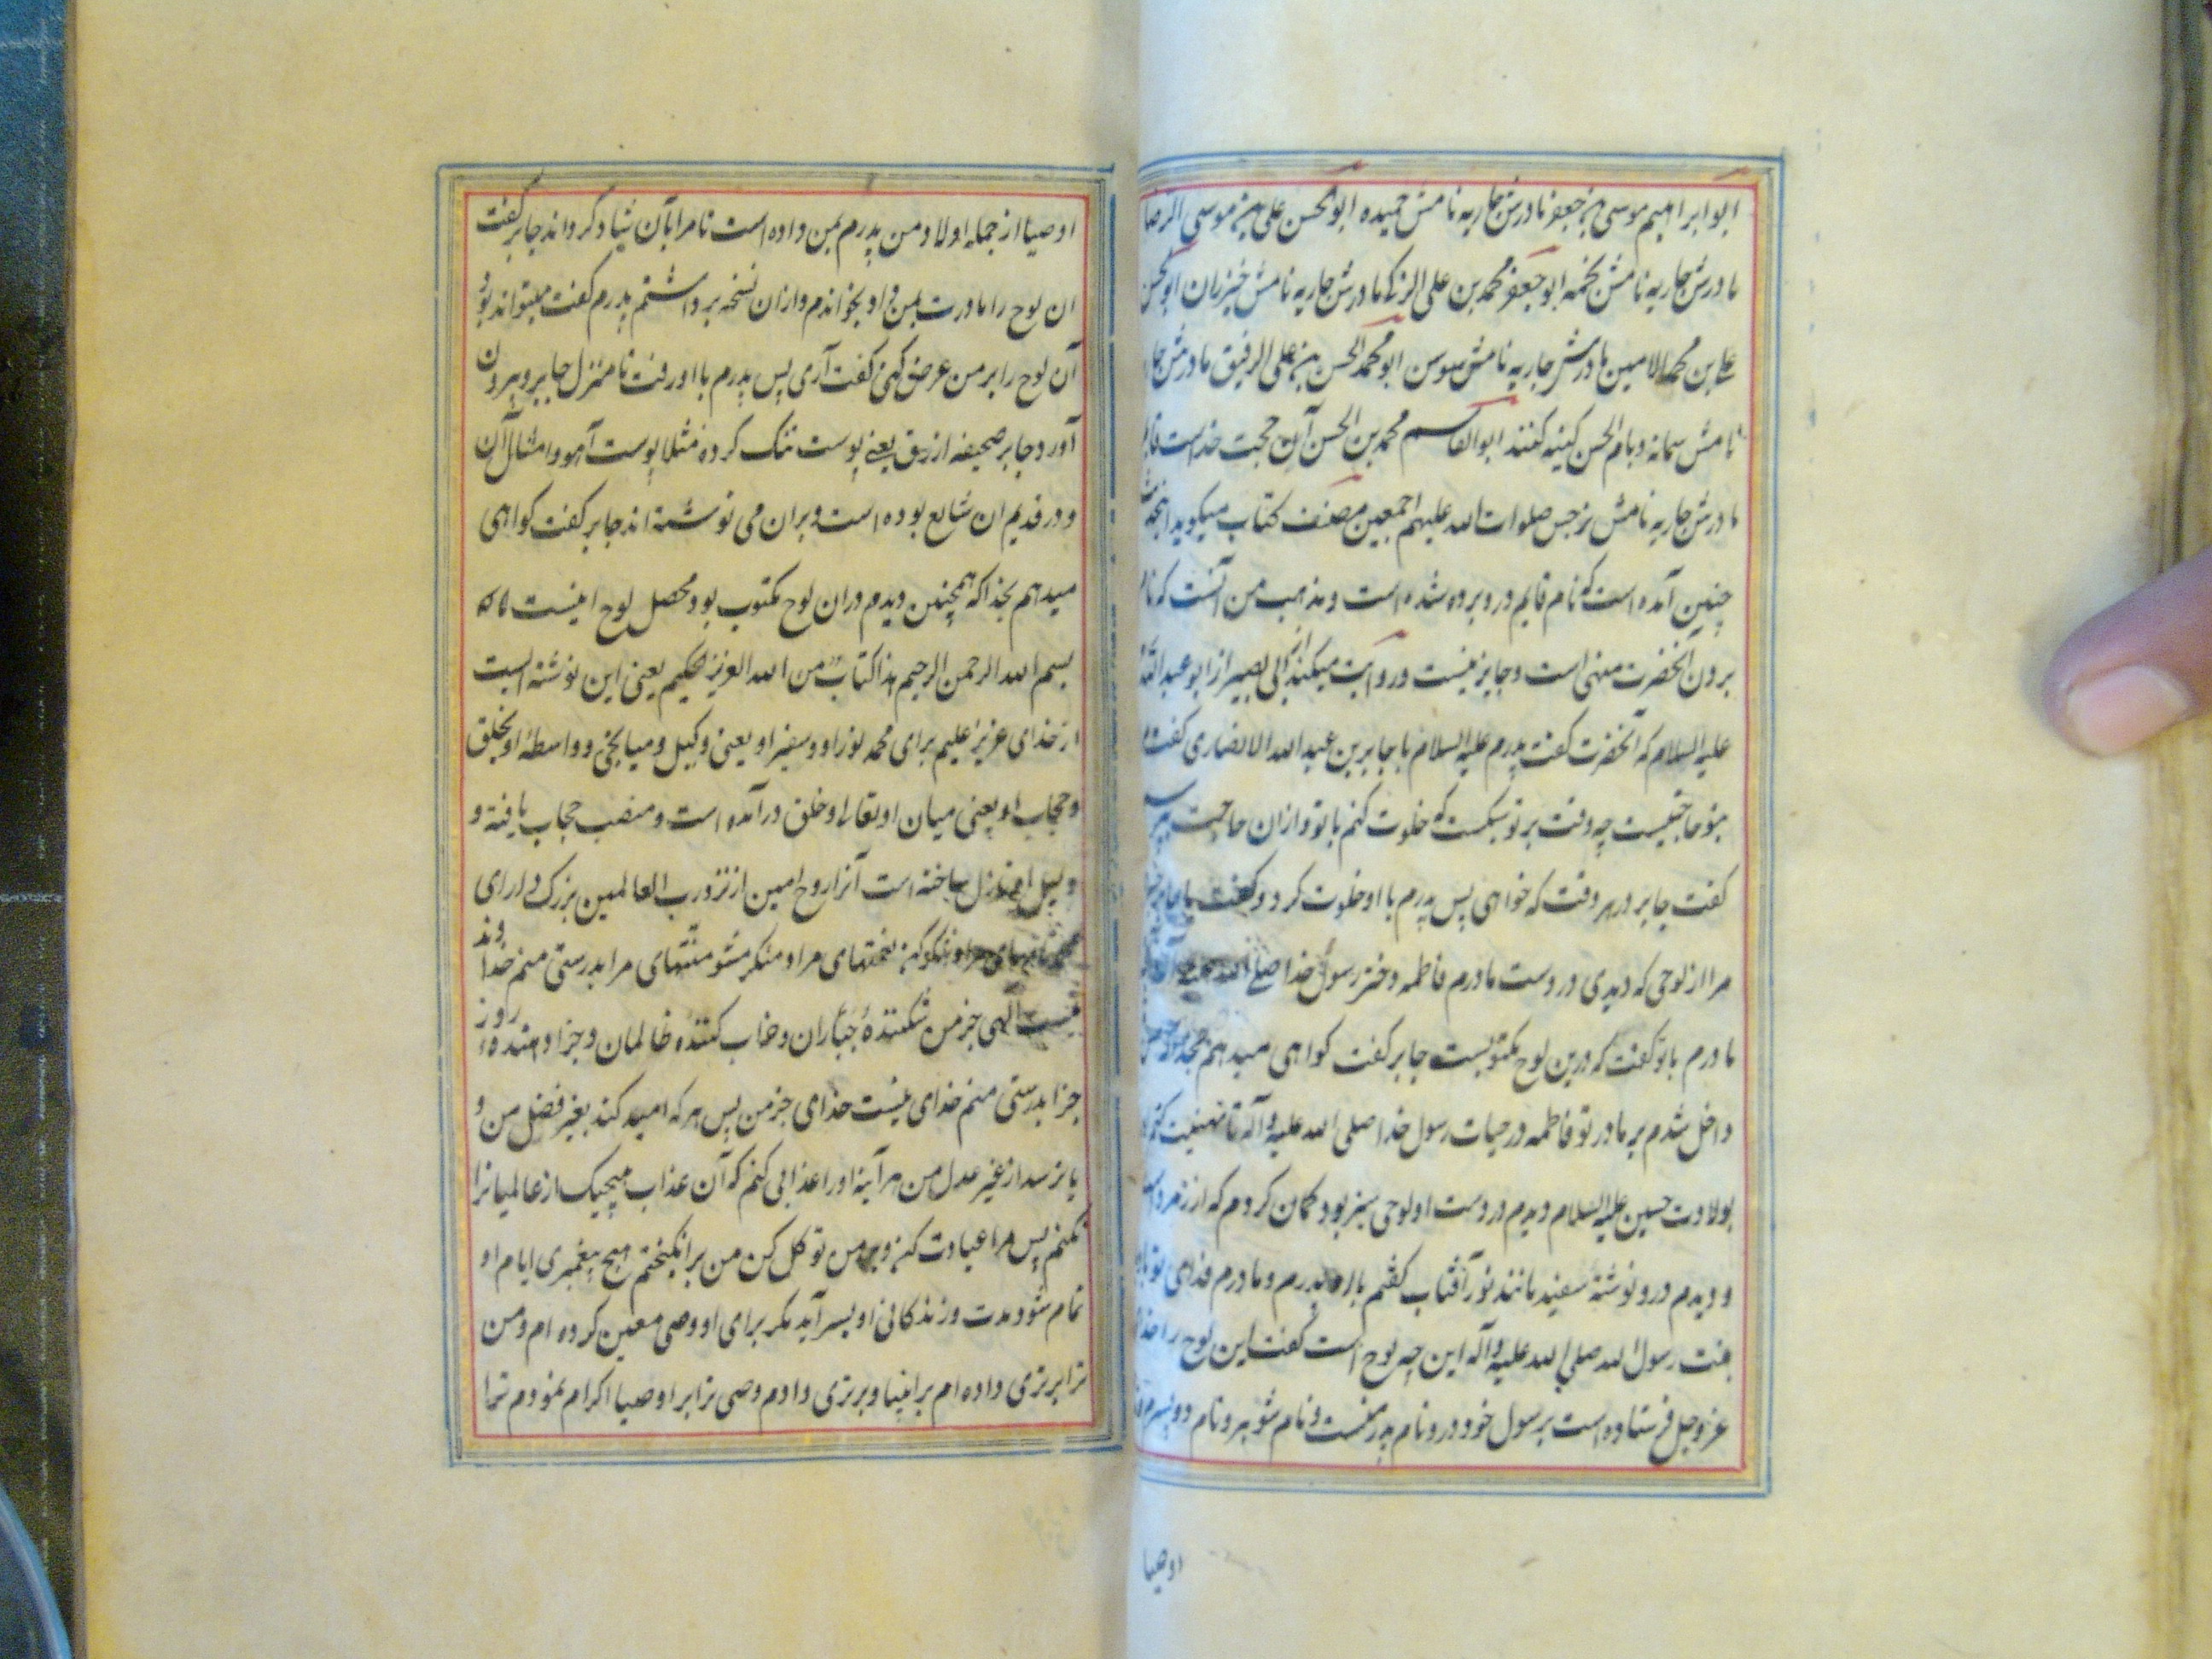 ابو ابراهیم موسی بن جعفر مادرش جاریه نامش حمیده ابو الحسن علی بن موسی الرضا
مادرش جاریه نامش نجمه ابو جعفر محمد بن علی الزکی مادرش جاریه نامش خیزران ابو الحسن
علی بن محمد الامین مادرش جاریه نامش سوسن ابو محمد الحسن بن علی الرفیق مادرش
نامش سمانه و بام الحسن کنیه کنند ابو القاسم محمد بن الحسن آن حجت خداست
مادرش جاریه نامش نرجس صلوات الله علیهم اجمعین مصنف کتاب میکوید
چنین آمده است که نام قایم درو برده شده است و مذهب من آنست که
بردن آنحضرت منهی است و جایز نیست و روایت میکند از ابی بصیر از ابو عبد الله
علیه السلام که آنحضرت کفت پدرم علیه السلام با جابر بن عبد الله الانصاری کفت
بتو حاجتیست چه وقت بر تو سبکست که خلوت کنم با تو و ازان حاجت
کفت جابر در هر وقت که خواهی پس پدرم با او خلوت کرد و کفت یا جابر
مرا از لوحی که دیدی در دست مادرم فاطمه دختر رسول خدا صلی الله علیه
مادرم با تو کفت که درین لوح مکتوبست جابر کفت کواهی میدهم
داخل شدم بر مادر تو فاطمه در حیات رسول خدا صلی الله علیه و آله تا تهنیت
بولادت حسین علیه السلام دیدم در دست او لوحی سبز بود کمان کردم که از زمرد
و دیدم درو نوشتهٔ سفید مانند نور آفتاب کفتم پدرم و مادرم فدای تو
بنت رسول الله صلی الله علیه و آله این چه لوح است کفت این لوح را
عز و جل فرستاده است برسول خود درو نام پدر منست و نام شوهر و نام دو پسرم
اوصیا
اوصیا از جمله اولاد من پدرم بمن داده است تا مرا بآن شاد کرداند جابر کفت
ان لوح را مادرت بمن داد بخواندم و ازان نسخه برداشتم پدرم کفت میتواند بود
آن لوح را بر من عرض کنی کفت آری پس پدرم با او رفت تا منزل جابر و بیرون
آورد جابر صحیفه از رق یعنی پوست تنک کرده مثلا پوست آهو و امثال آن
و در قدیم ان شایع بوده است و بران می نوشته اند جابر کفت کواهی
میدهم بخدا که همچنین دیدم دران لوح مکتوب بود محصل لوح اینست
بسم الله الرحمن الرحیم هذا کتاب من الله العزیز الحکیم یعنی این نوشته ایست
از خدای عزیز علیم برای محمد نور او و سفیر او یعنی وکیل و میانجی و واسطهٔ او بخلق
و حجاب او یعنی میان او تعالی و خلق در آمده است و منصب حجاب یافته و
دلیل او نازل ساخته است آنرا روح امین از نزد رب العالمین بزرک دارای
محمد نامهای مرا و شکر کن نعمتهای مرا و منکر مشو منتهای مرا بدرستی منم خداوند
نیست الهی جز من شکنندهٔ جباران و خراب کننده ظالمان و جزا دهندهٔ روز
جزا بدرستی منم خدای نیست خدای جز من پس هر که امید کند بغیر فضل من و
یا ترسد از غیر عدل من هر آینه او را عذابی کنم که آن عذاب هیچیک از عالمیانرا
نکنم پس مرا عبادت کن و بر من توکل کن من بر انکیختم هیچ پیغمبری ایام او
تمام شود و مدت زندکانی او بسر آید مکر برای او وصی معین کرده ام و من
ترا برتری داده ام بر انبیا و برتری دادم وصی ترا بر اوصیا اکرام نمودم ترا